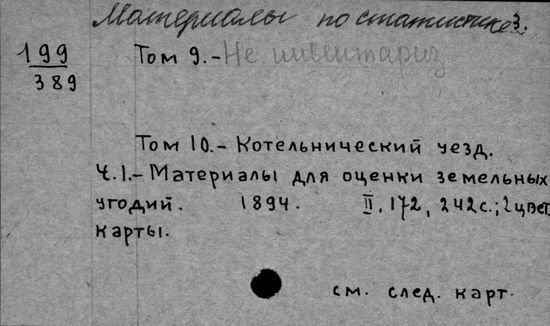 Материалы по статистике 3.
199
389
Том 9.- Не инвентариз
Том 10.- Котельнический уезд.
Ч.1.- Материалы для оценки земельных
угодий. 1894. II, 172, 242с.; 2 цвет.
карты.
см. след. карт.